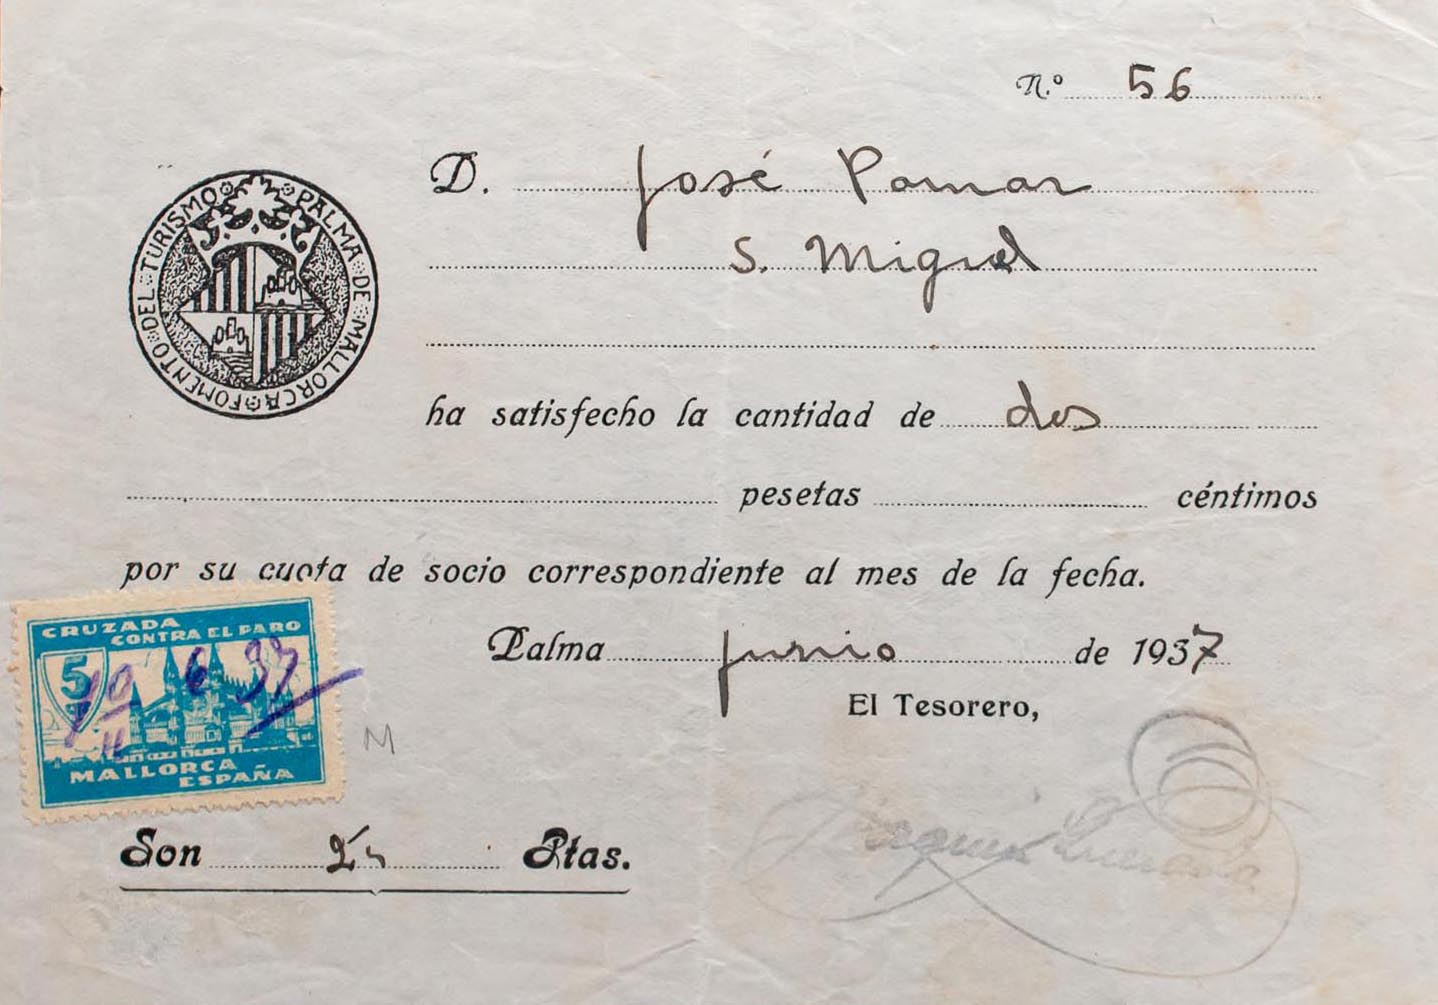 N.º 56
FOMENTO DEL TURISMO PALMA DE MALLORCA
D. José Pomar
S. Miguel
ha satisfecho la cantidad de dos
pesetas céntimos
por su cuota de socio correspondiente al mes de la fecha.
CRUZADA
CONTRA EL PARO
5
10 6 37
MALLORCA
ESPAÑA
M
Palma junio de 1937
El Tesorero,
Son 2 Ptas.